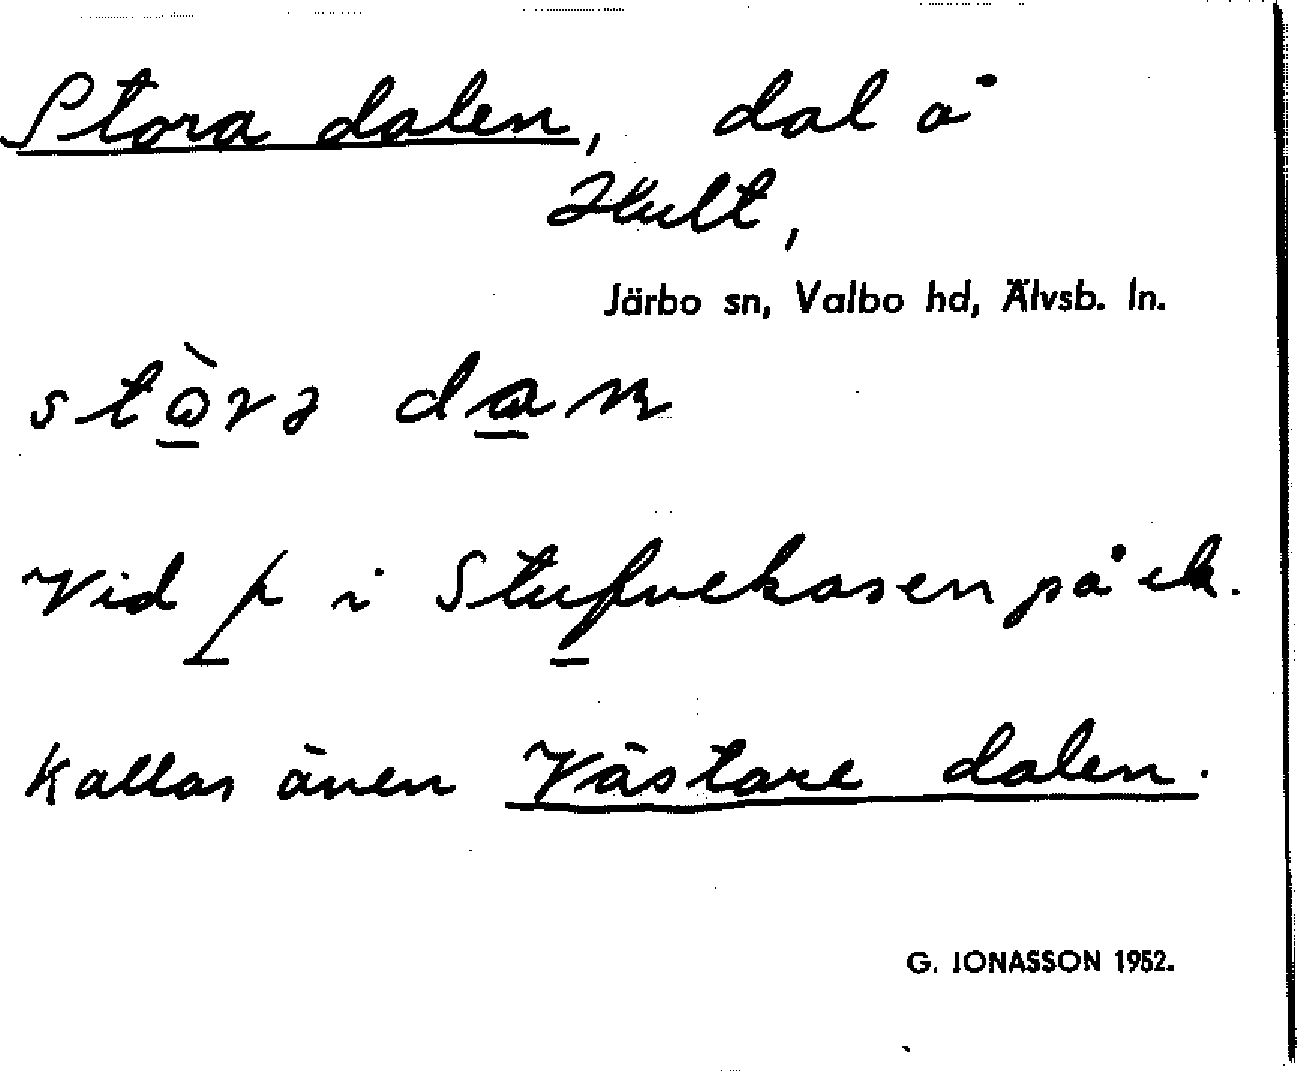 Stora dalen, dal å
Hult,
Järbo sn, Valbo hd, Älvsb. ln.
Vid p i Stufvekasen på ek.
Kallas även Västare dalen.
G. JONASSON 1952.